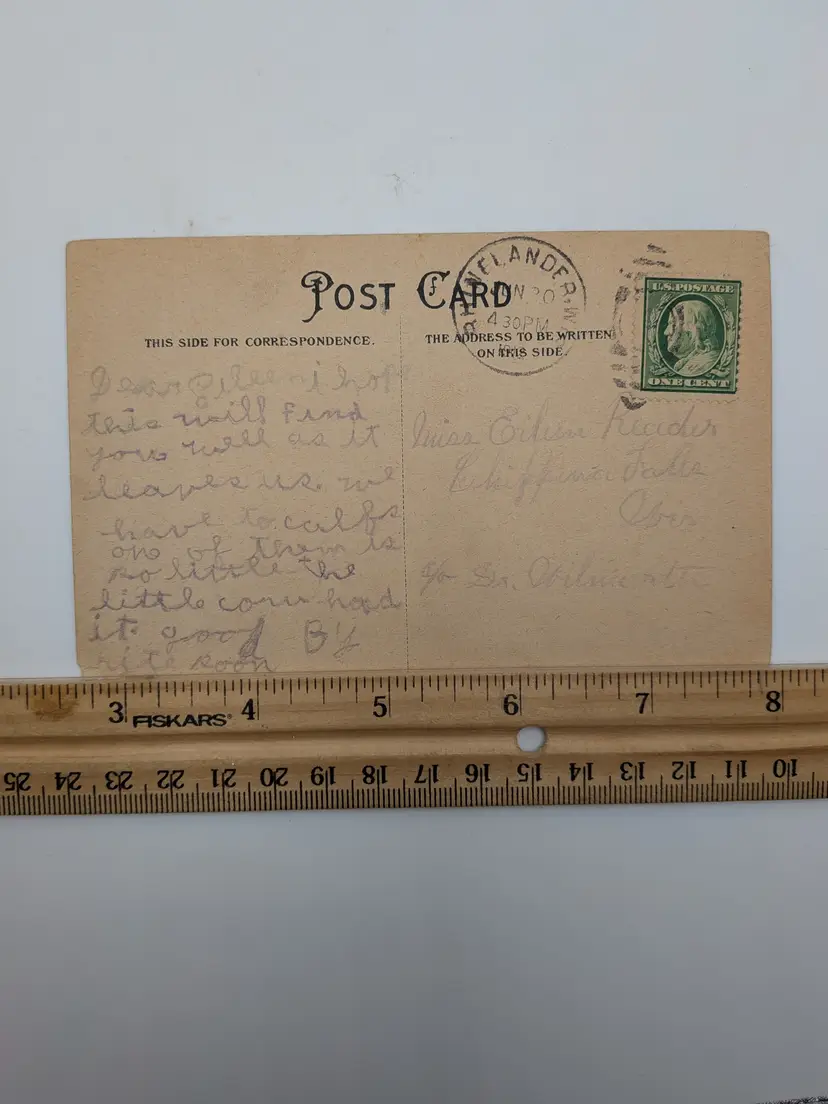 POST CARD
THIS SIDE FOR CORRESPONDENCE.
THE ADDRESS TO BE WRITTEN
ON THIS SIDE.
RHINELANDER, WIS
JUN 20
4 30PM
U.S. POSTAGE
ONE CENT
Dear Eileen i hop
this will find
you well as it
leaves us. we
have to calfs
one of them is
so little the
little cow had
it. good By
rite soon
Miss Eileen
Chippewa Falls
Wis
c/o Dr.
3 FISKARS 4 5 6 7 8
25 24 23 22 21 20 19 18 17 16 15 14 13 12 11 10